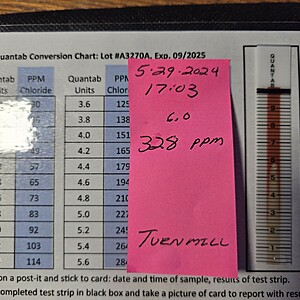 uantab Conversion Chart: Lot #A3270A, Exp. 09/2025
5-29-2024
17:03
6.0
328 PPM
TURNMILL
ntab Units PPM Chloride Quantab Units PPM
30 3.6 125
3.8 138
4.0 151
49 4.2 165
57 4.4 179
65 4.6 194
73 4.8 210
83 5.0 227
92 5.2 245
103 5.4 264
114 5.6 284
QUANTAB
9
8
7
6
5
4
3
2
1
on a post-it and stick to card: date and time of sample, results of test strip.
completed test strip in black box and take a picture of card to report with res